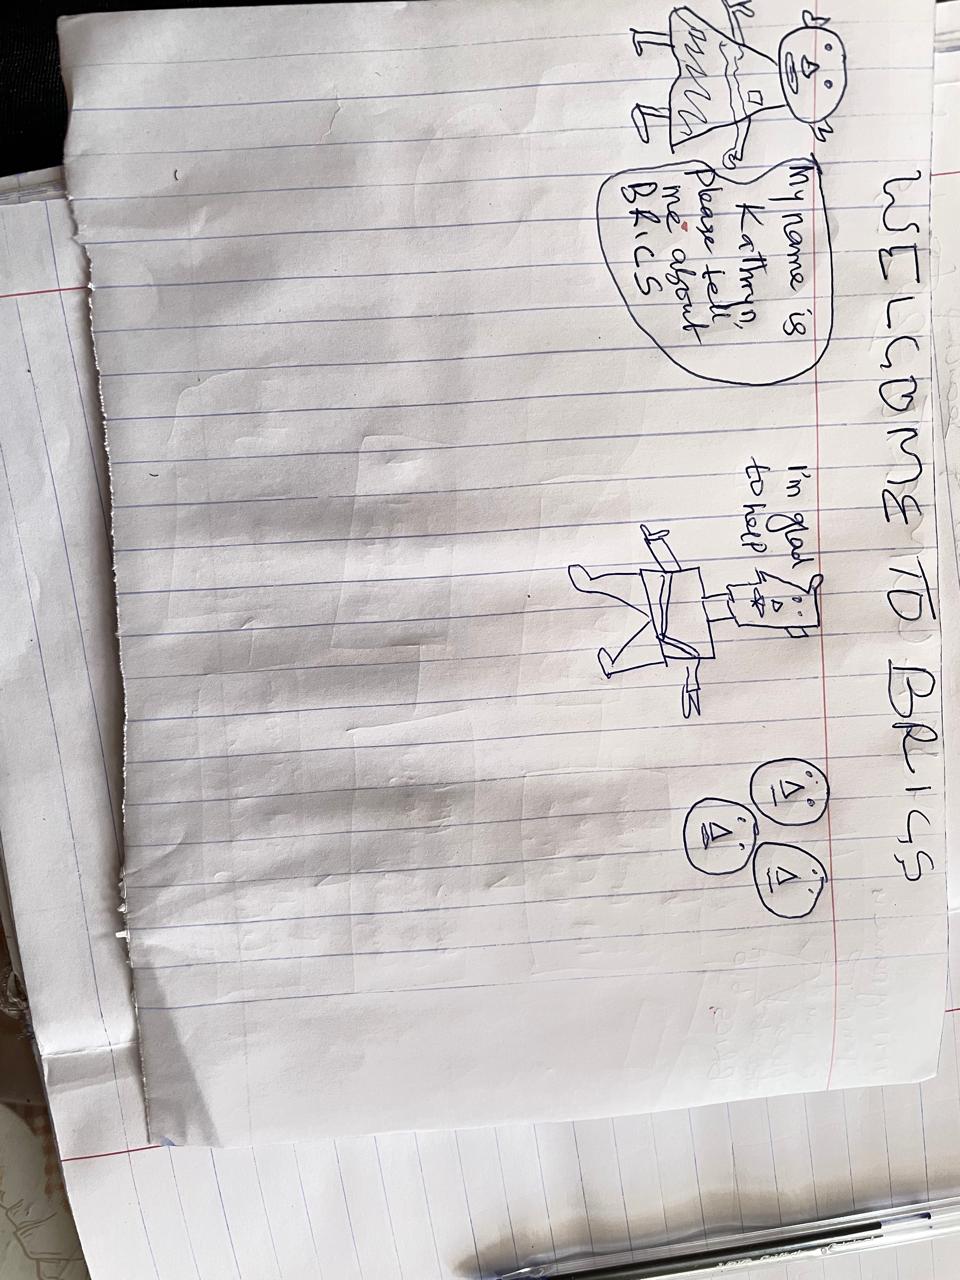 WELCOME TO BRICS
My name is
Kathryn,
Please tell
me about
BRICS
I'm glad
to help